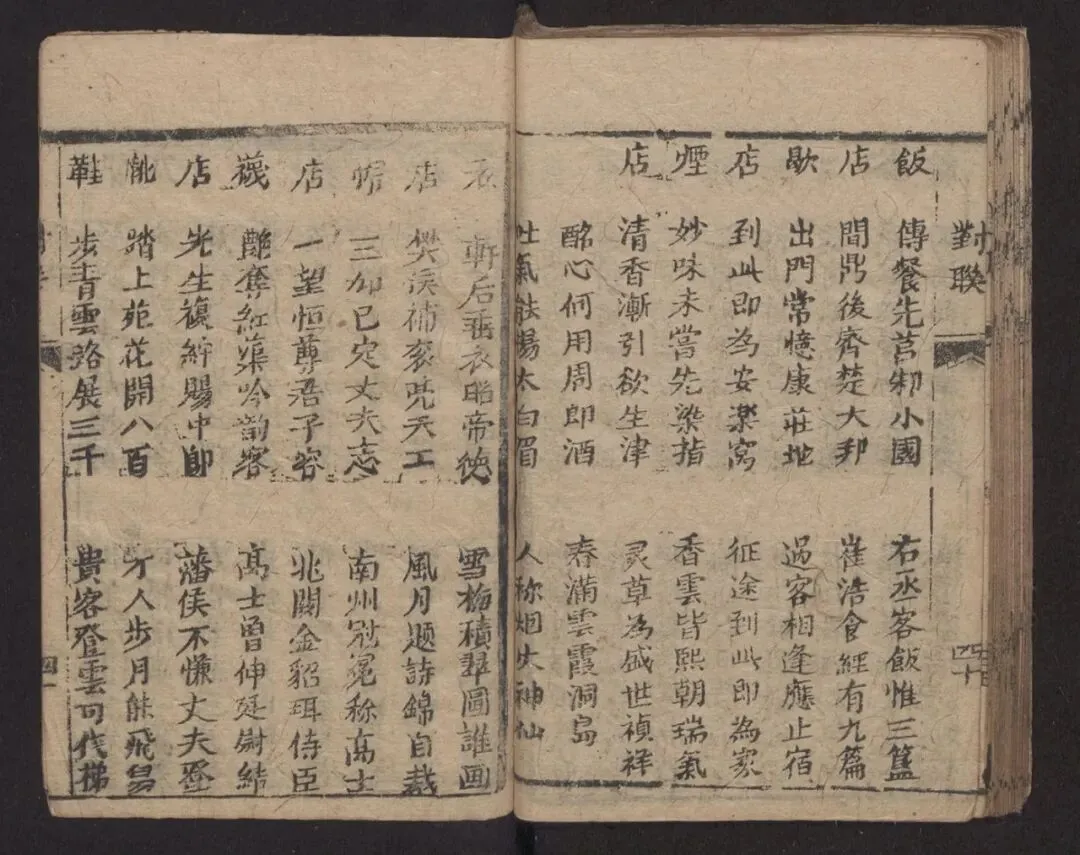 對聯
四十
飯 傳餐先莒邾小國 右丞客飯惟三簋
店 間鼎後齊楚大邦 崔浩食經有九篇
歇 出門常憶康莊地 過客相逢應止宿
店 到此即為安楽窩 征途到此即為家
煙 妙味未嘗先染指 香雲皆熙朝瑞氣
店 清香漸引欲生津 灵草為盛世禎祥
酩心何用周郎酒 春滿雲霞洞島
吐氣能揚太白眉 人称烟火神仙
衣 軒后垂衣昭帝德 雪梅積翠圖誰画
店 樊溪補衮兠天工 風月题詩錦自裁
帽 三加已定丈夫志 南州冠冕称高士
店 一望恒尊君子容 北闕金貂珥侍臣
襪 艷奪紅蕖吟韵客 高士曾伸廷尉結
店 先生複絆賜中郎 藩侯不慊丈夫登
靴 踏上苑花開八百 才人步月能飛舄
鞋 步青雲路展三千 貴客登雲可代梯